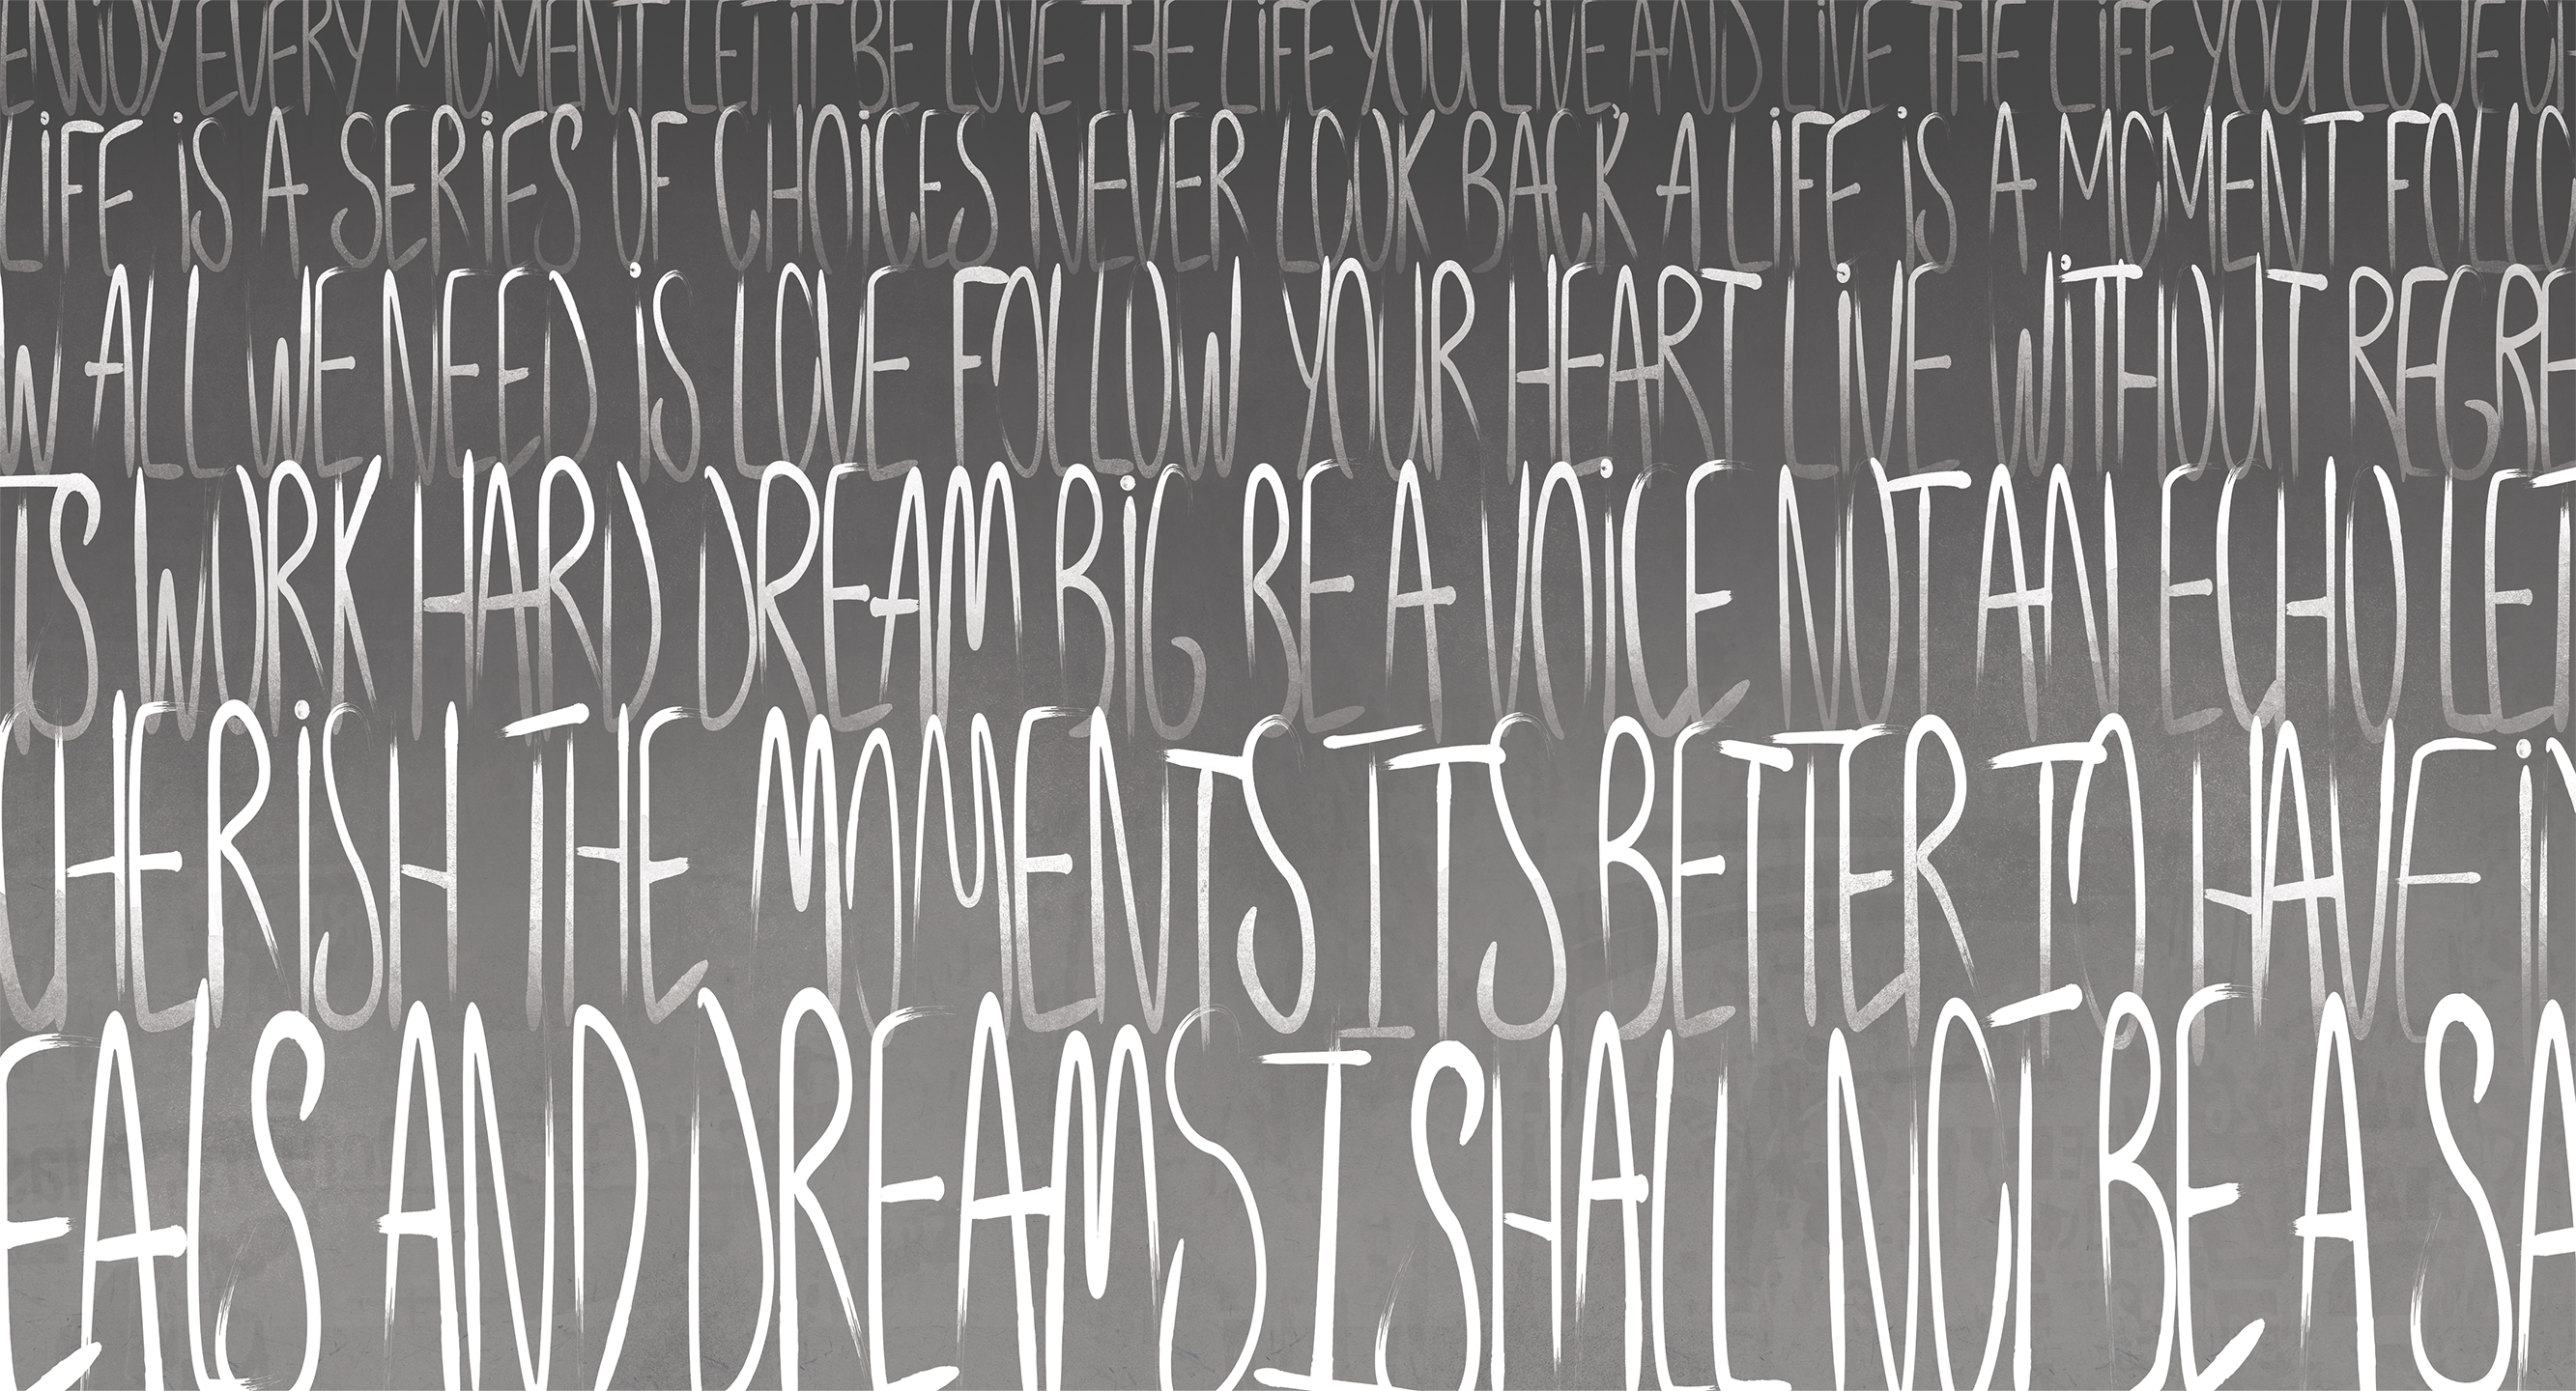 ENJOY EVERY MOMENT LET IT BE LOVE THE LiFE YOU LiVE AND LiVE THE LiFE YOU LOVE
LiFE iS A SERiES OF CHOiCES NEVER LOOK BACK A LiFE iS A MOMENT FOLLO
W ALL WE NEED iS LOVE FOLLOW YOUR HEART LiVE WiTHOUT REGRE
TS WORK HARD DREAM BiG BE A VOiCE NOT AN ECHO LET
CHERiSH THE MOMENTS ITS BETTER TO HAVE
EALS AND DREAMS I SHALL NOT BE A SA